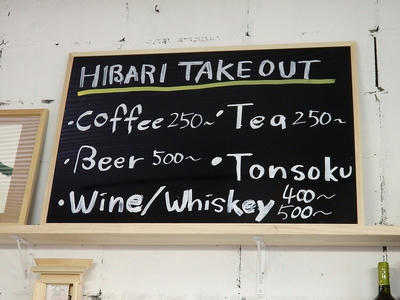 HIBARI TAKE OUT
•Coffee 250~ •Tea 250~
•Beer 500~ •Tonsoku
400~
•Wine/Whiskey 500~